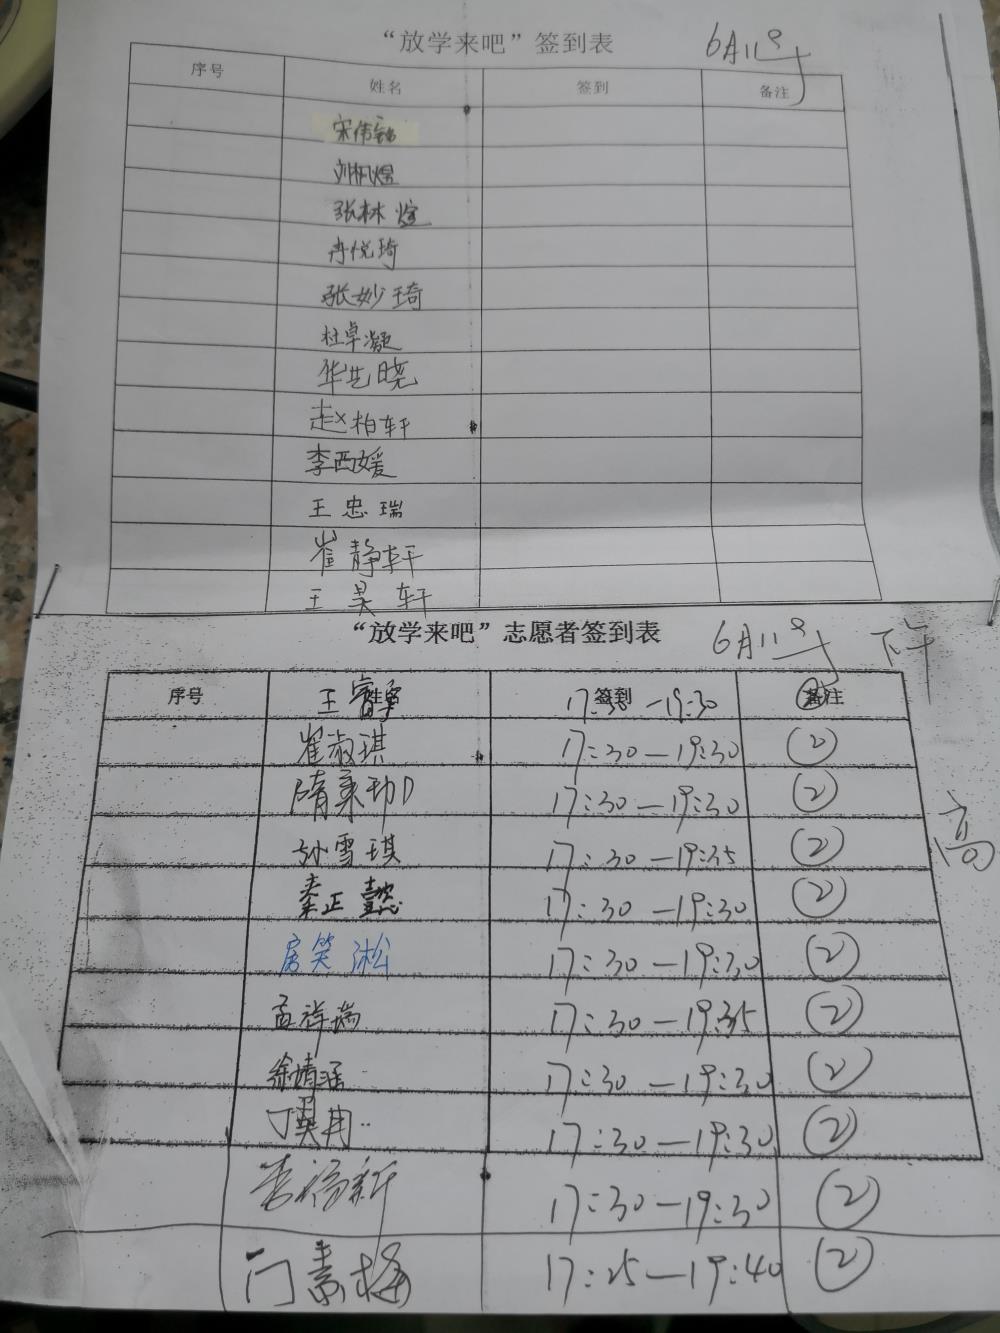 “放学来吧”签到表 6月11号
序号 姓名 签到 备注
宋伟
刘枫煜
张林煊
冉悦琦
张妙琦
杜卓凝
华先晓
赵柏轩
李西媛
王忠瑞
崔静轩
王昊轩
“放学来吧”志愿者签到表 6月11号 下午
序号 姓名 签到 备注
王 17:30—19:30 ②
崔淑琪 17:30—19:30 ②
隋秉 17:30—19:30 ②
高
孙雪琪 17:30—19:35 ②
秦正懿 17:30—19:30 ②
房笑淞 17:30—19:30 ②
孟祥瑞 17:30—19:35 ②
徐靖涵 17:30—19:30 ②
丁昊冉 17:30—19:30 ②
李福新 17:30—19:30 ②
门素梅 17:25—19:40 ②